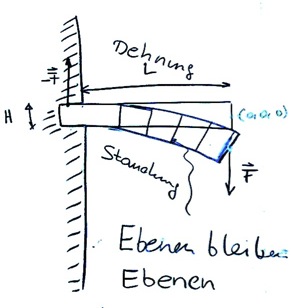 Dehnung
L
-F
H
(0,0,0)
Stauchung
F
Ebenen bleiben
Ebenen